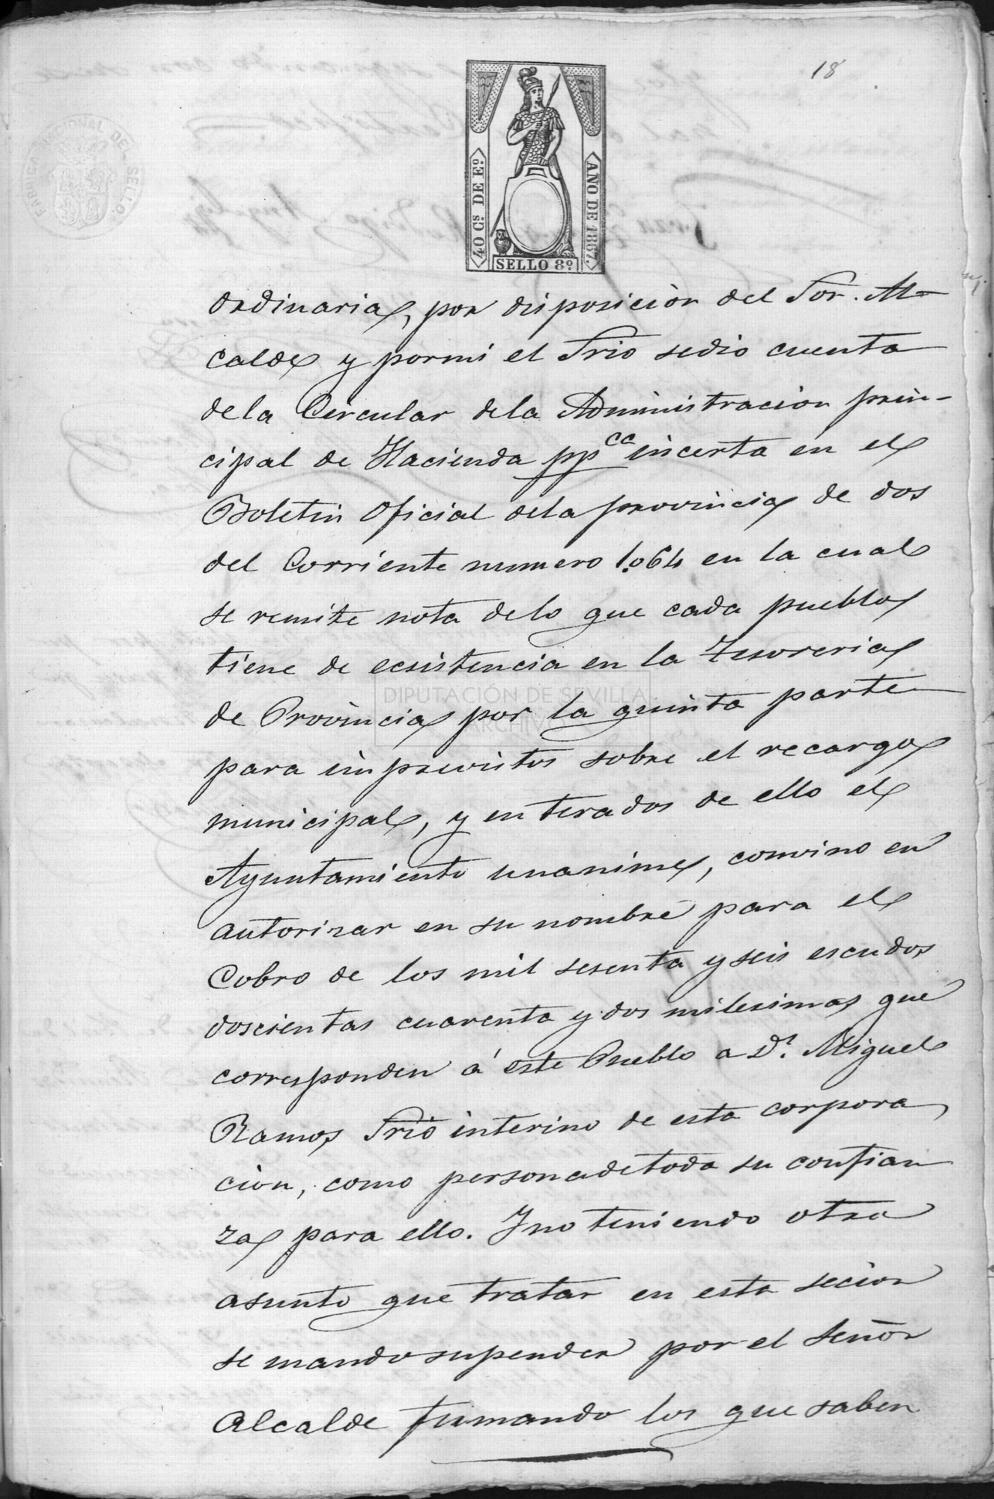 18
FABRICA NACIONAL DEL SELLO
40 Cs DE Eo
AÑO DE 1867.
SELLO 8º
ordinaria, por disposición del Sor. Al-
calde y pormi el Srio sedio cuenta
dela Circular dela Administracion prin-
cipal de Hacienda ppca incerta en el
Boletin Oficial dela provincia de dos
del Corriente numero 1.064 en la cual
se remite nota delo que cada pueblo
tiene de ecsistencia en la Tesoreria
de Provincia por la quinta parte
para imprevistos sobre el recargo
municipal, y enterados de ello el
Ayuntamiento unanime, convino en
autorizar en su nombre para el
Cobro de los mil sesenta y seis escudos
doscientas cuarenta y dos milesimas que
corresponden á este Pueblo a Dn. Miguel
Ramos Srio interino de esta corpora
cion, como personadetoda su confian
za para ello. Yno teniendo otro
asunto que tratar en esta secion
se mando supender por el Señor
Alcalde firmando los que saben
DIPUTACIÓN DE SEVILLA
ARCHIVO